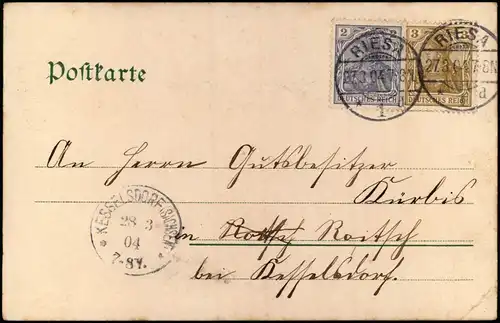 Postkarte
2
3
DEUTSCHES REICH
DEUTSCHES REICH
RIESA
27.3.04.7-8N.
* 1
RIESA
27.3.04.7-8N.
a
An Herrn Gutsbesitzer
Kürbis
in Roitsch
bei Kesselsdorf.
* KESSELSDORF
28 3
04
7-8V.